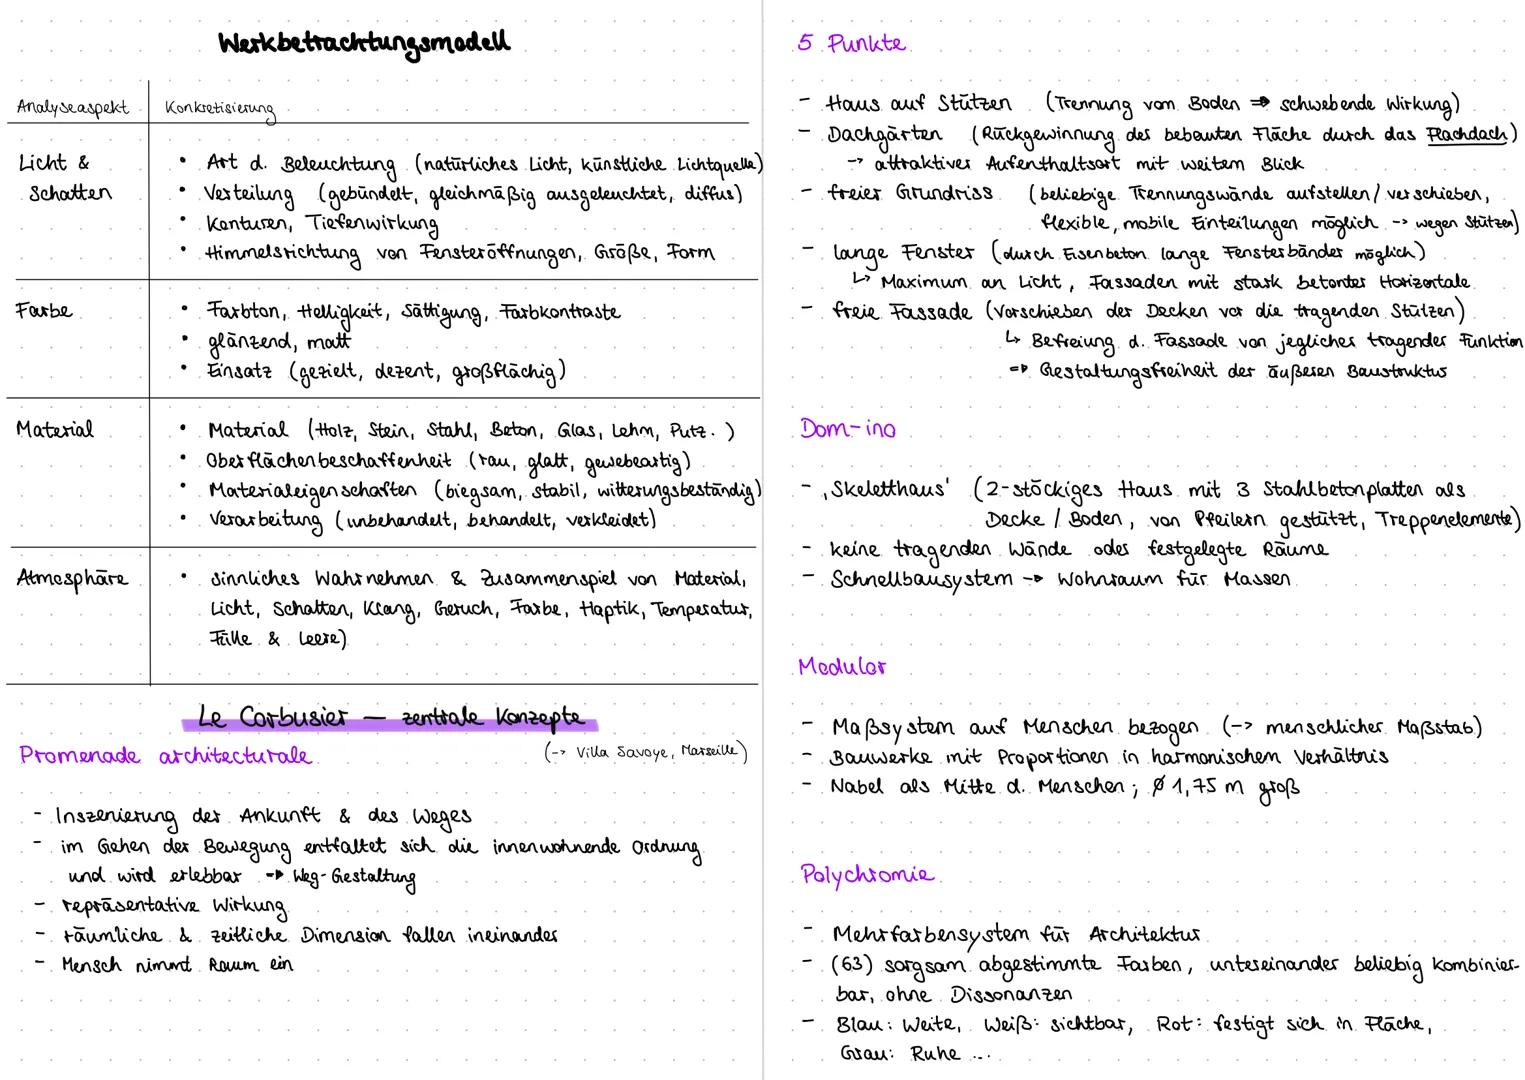 Werkbetrachtungsmodell
Analyseaspekt Konkretisierung
Licht & Schatten
• Art d. Beleuchtung (natürliches Licht, künstliche Lichtquelle)
• Verteilung (gebündelt, gleichmäßig ausgeleuchtet, diffus)
• Konturen, Tiefenwirkung
• Himmelsrichtung von Fensteröffnungen, Größe, Form
Farbe
• Farbton, Helligkeit, Sättigung, Farbkontraste
• glänzend, matt
• Einsatz (gezielt, dezent, großflächig)
Material
• Material (Holz, Stein, Stahl, Beton, Glas, Lehm, Putz..)
• Oberflächenbeschaffenheit (rau, glatt, gewebeartig)
• Materialeigenschaften (biegsam, stabil, witterungsbeständig)
• Verarbeitung (unbehandelt, behandelt, verkleidet)
Atmosphäre
• sinnliches Wahrnehmen & Zusammenspiel von Material,
Licht, Schatten, Klang, Geruch, Farbe, Haptik, Temperatur,
Fülle & Leere)
Le Corbusier – zentrale Konzepte
Promenade architecturale (-> Villa Savoye, Marseille)
- Inszenierung der Ankunft & des Weges
- im Gehen der Bewegung entfaltet sich die innenwohnende Ordnung
und wird erlebbar → Weg-Gestaltung
- repräsentative Wirkung
- räumliche & zeitliche Dimension fallen ineinander
- Mensch nimmt Raum ein
5 Punkte
- Haus auf Stützen (Trennung vom Boden ⇒ schwebende Wirkung)
- Dachgärten (Rückgewinnung der bebauten Fläche durch das Flachdach)
-> attraktiver Aufenthaltsort mit weitem Blick
- freier Grundriss (beliebige Trennungswände aufstellen/verschieben,
flexible, mobile Einteilungen möglich -> wegen Stützen)
- lange Fenster (durch Eisenbeton lange Fensterbänder möglich)
↳ Maximum an Licht, Fassaden mit stark betonter Horizontale
- freie Fassade (Vorschieben der Decken vor die tragenden Stützen)
↳ Befreiung d. Fassade von jeglicher tragender Funktion
⇒ Gestaltungsfreiheit der äußeren Baustruktur
Dom-ino
- ‚Skeletthaus' (2-stöckiges Haus mit 3 Stahlbetonplatten als
Decke / Boden, von Pfeilern gestützt, Treppenelemente)
- keine tragenden Wände oder festgelegte Räume
- Schnellbausystem → Wohnraum für Massen
Modulor
- Maßsystem auf Menschen bezogen (-> menschlicher Maßstab)
- Bauwerke mit Proportionen in harmonischem Verhältnis
- Nabel als Mitte d. Menschen; Ø 1,75 m groß
Polychromie
- Mehrfarbensystem für Architektur
- (63) sorgsam abgestimmte Farben, untereinander beliebig kombinier-
bar, ohne Dissonanzen
- Blau: Weite, Weiß: sichtbar, Rot: festigt sich in Fläche,
Grau: Ruhe ...